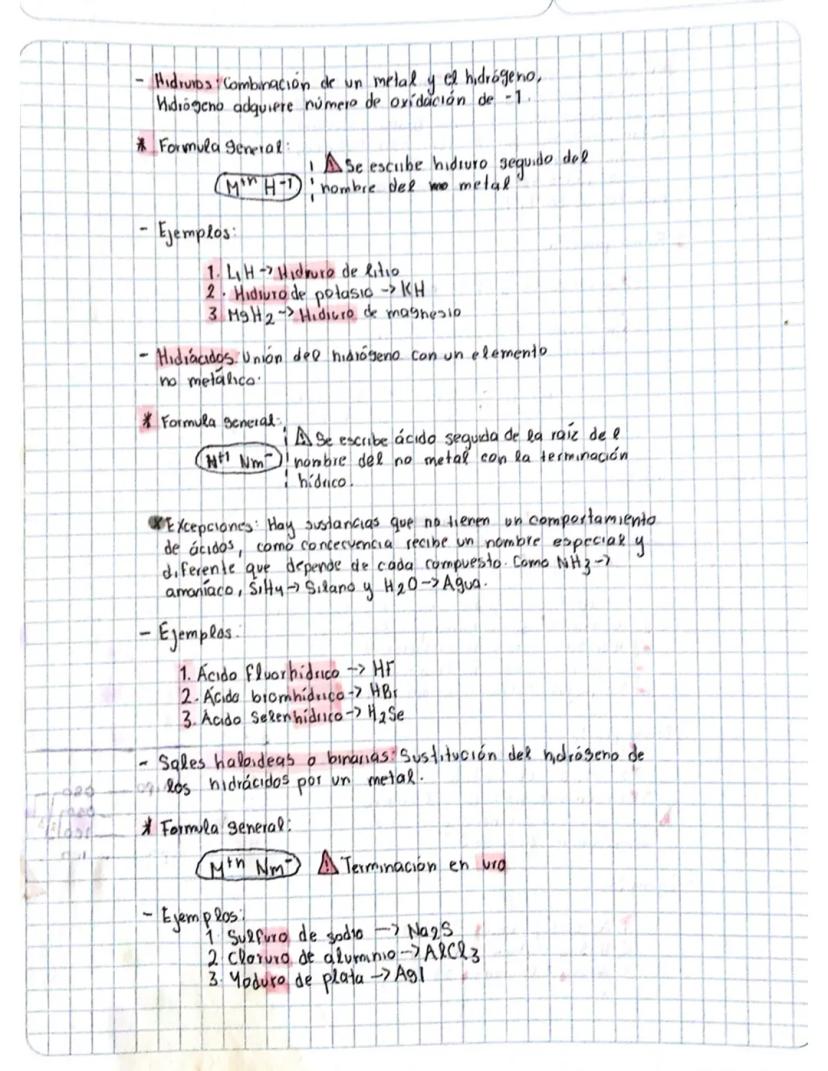 - Hidruros: Combinación de un metal y el hidrógeno,
Hidrógeno adquiere número de oxidación de -1.
* Formula general:
⚠ Se escribe hidruro seguido del
M⁺ⁿ H⁻¹ nombre del metal
- Ejemplos:
1. LiH -> Hidruro de litio
2. Hidruro de potasio -> KH
3. MgH2 -> Hidruro de magnesio
- Hidrácidos: Unión del hidrógeno con un elemento
no metálico.
* Formula general:
⚠ Se escribe ácido seguida de la raíz de l
H⁺¹ Nm⁻ nombre del no metal con la terminación
hídrico.
* Excepciones: Hay sustancias que no tienen un comportamiento
de ácidos, como concecuencia recibe un nombre especial y
diferente que depende de cada compuesto. Como NH3 ->
amoníaco, SiH4 -> Silano y H2O -> Agua.
- Ejemplos:
1. Ácido Fluorhídrico -> HF
2. Ácido bromhídrico -> HBr
3. Ácido Selenhídrico -> H2Se
- Sales haloideas o binarias: Sustitución del hidrógeno de
los hidrácidos por un metal.
* Formula general:
M⁺ⁿ Nm⁻ ⚠ Terminacion en uro
- Ejemplos:
1. Sulfuro de sodio -> Na2S
2. Cloruro de aluminio -> AlCl3
3. Yoduro de plata -> AgI